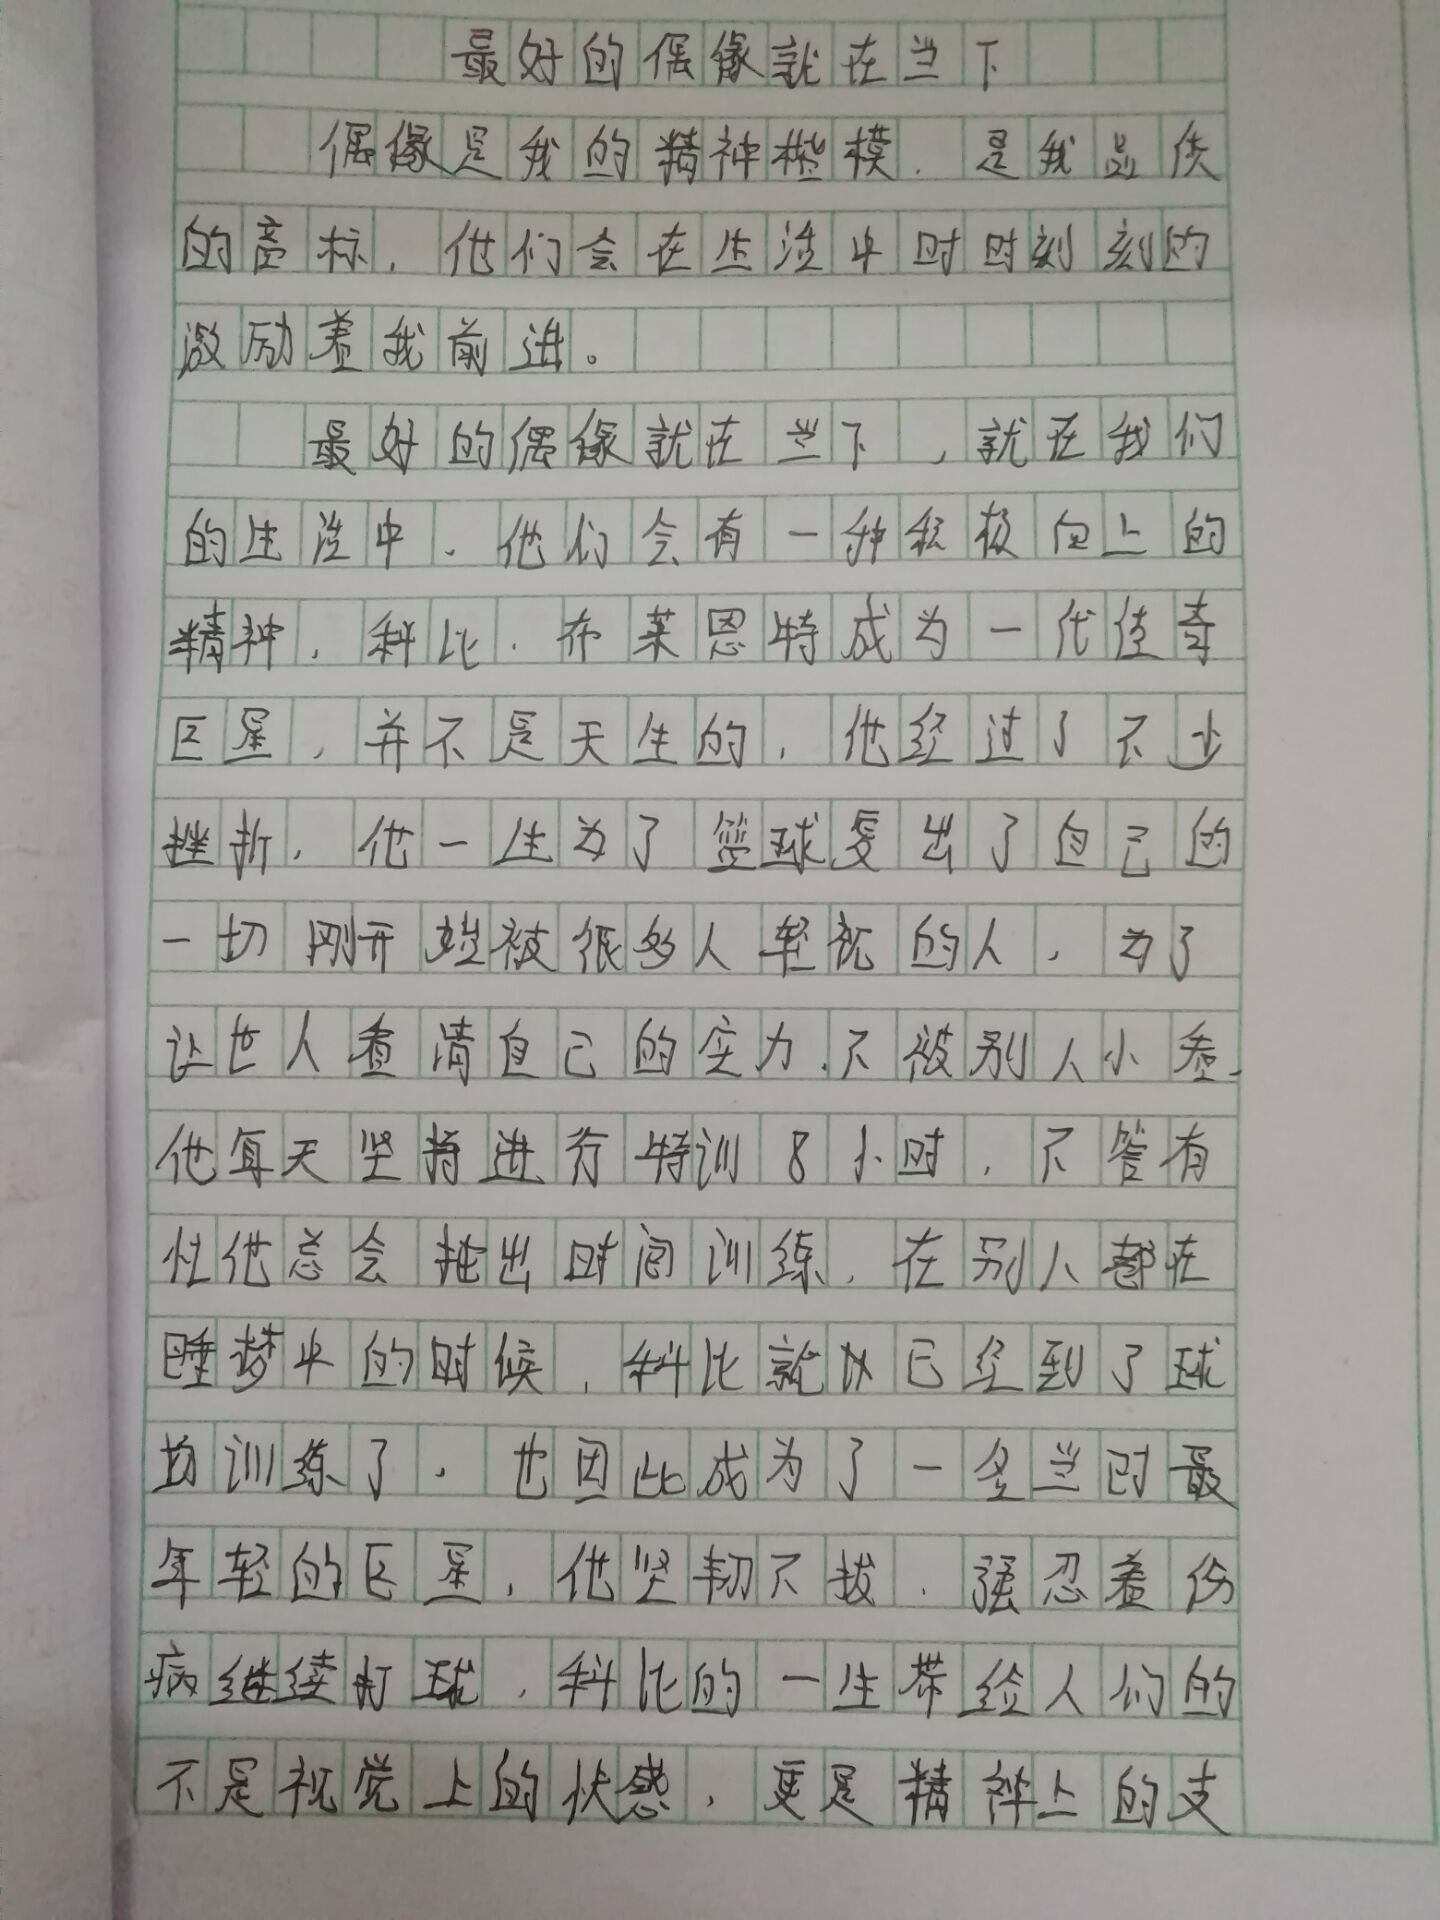 最好的偶像就在当下
偶像是我的精神楷模，是我品质
的商标，他们会在生活中时时刻刻的
激励着我前进。
最好的偶像就在当下，就在我们
的生活中，他们会有一种积极向上的
精神，科比·布莱恩特成为一代传奇
巨星，并不是天生的，他经过了不少
挫折，他一生为了篮球付出了自己的
一切刚开始被很多人轻视的人，为了
让世人看清自己的实力，不被别人小看，
他每天坚持进行特训8小时，不管有
他总会抽出时间训练，在别人都在
睡梦中的时候，科比就以已经到了球
场训练了，也因此成为了一名当时最
年轻的巨星，他坚韧不拔，强忍着伤
病继续打球，科比的一生带给人们的
不是视觉上的快感，更是精神上的支